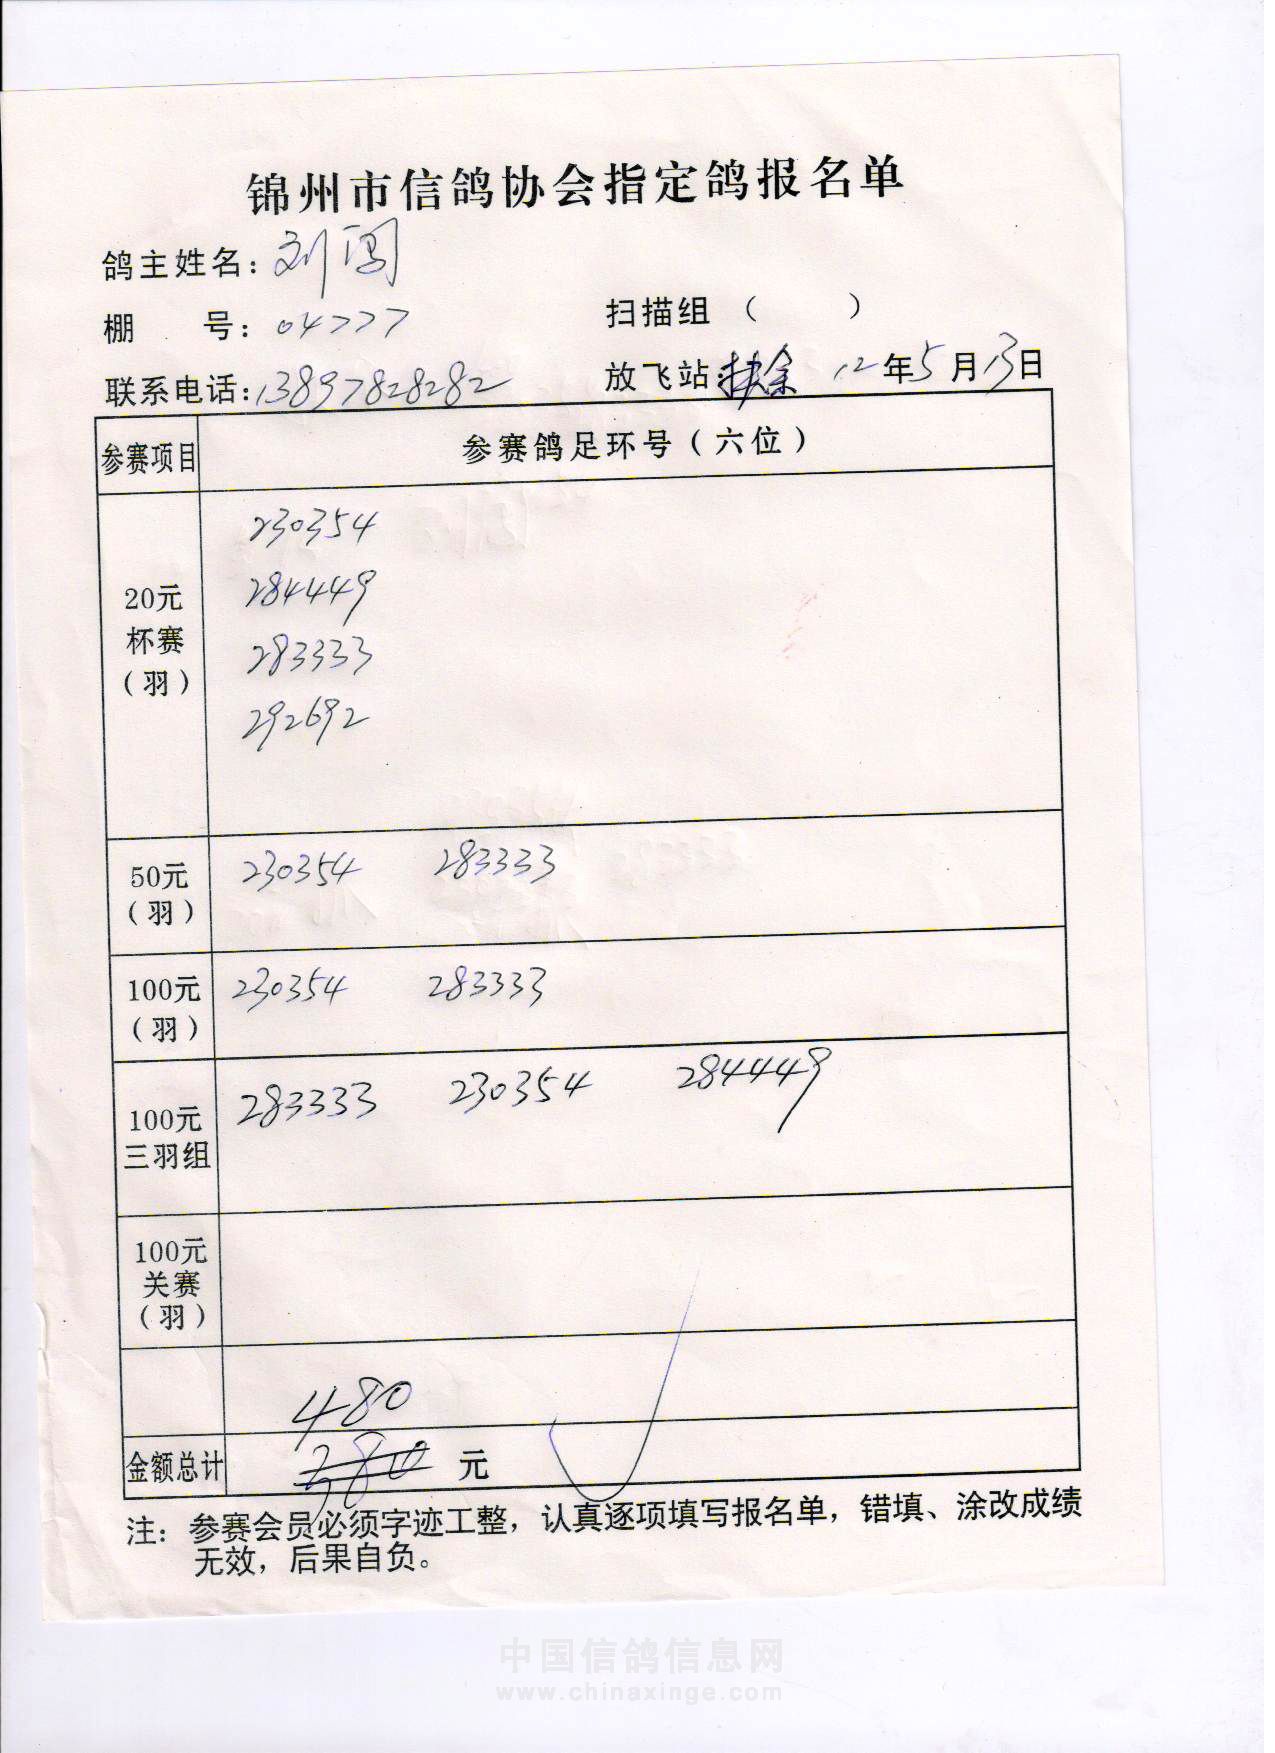 锦州市信鸽协会指定鸽报名单
鸽主姓名：刘闯
棚 号：04777 扫描组（ ）
联系电话：13897828282 放飞站：扶余 12年5月13日
参赛项目 参赛鸽足环号（六位）
20元
杯赛
（羽）
230354
284449
283333
292692
50元
（羽）
230354 283333
100元
（羽）
230354 283333
100元
三羽组
283333 230354 284449
100元
关赛
（羽）
480
金额总计 380 元
注：参赛会员必须字迹工整，认真逐项填写报名单，错填、涂改成绩
无效，后果自负。
中国信鸽信息网
www.chinaxinge.com